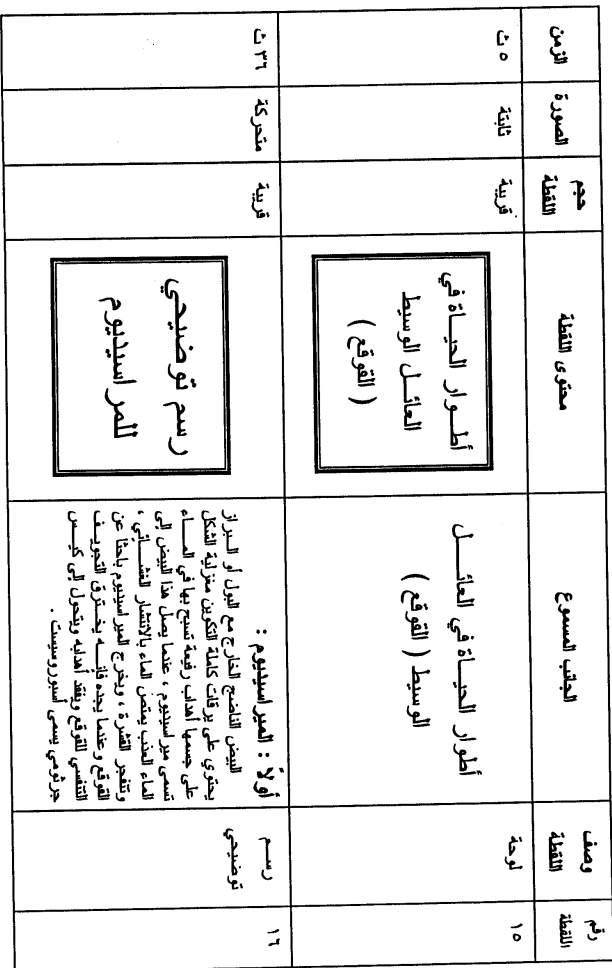 رقم
اللقطة
وصف
اللقطة
الجانب المسموع
محتوى اللقطة
حجم
اللقطة
الصورة
الزمن
١٥
لوحة
أطوار الحياة في العائـــل
الوسيط ( القوقع )
أطــوار الحيــاة في
العائــل الوسيط
( القوقع )
قريبة
ثابتة
٥ ث
١٦
رســم
توضيحي
أولاً : الميراسيديوم :
البيض الناضج الخارج مع البول أو البراز
يحتوي على يرقات كاملة التكوين مغزلية الشكل
على جسمها أهداب رفيعة تسبح بها في المــاء
تسمى ميراسيديوم ، عندما يصل هذا البيض إلى
الماء العذب يمتص الماء بالانتشار الغشــائي ،
وتنفجر القشرة ، ويخرج الميراسيديوم باحثا عن
القوقع وعندما يجده فإنــه يخــترق التجويــف
التنفسي للقوقع ويفقد أهدابه ويتحول إلى كيــس
جرثومي يسمى أسبوروسيست .
رسم توضيحي
للمراسيديوم
قريبة
متحركة
٣٦ ث